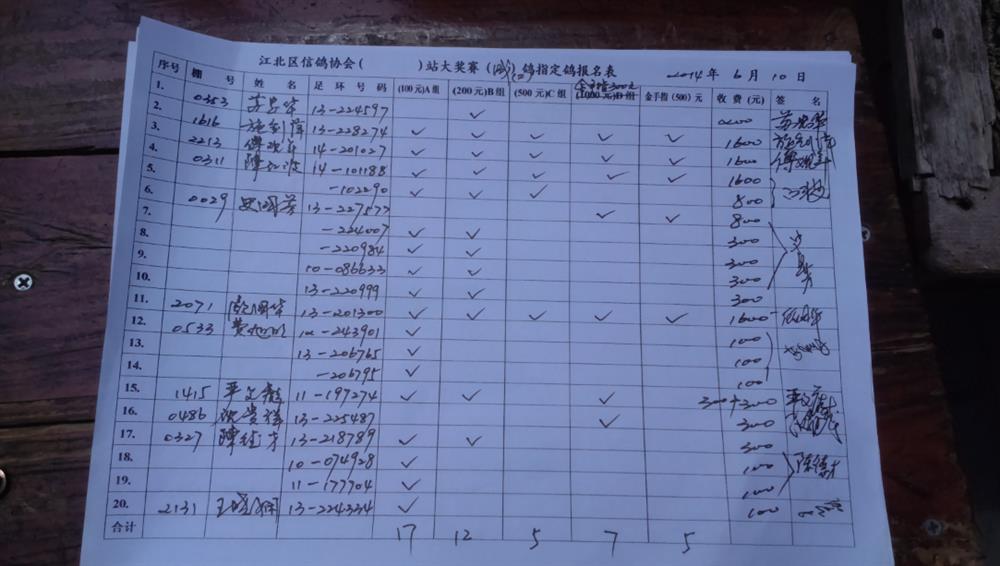 江北区信鸽协会( )站大奖赛( )鸽指定鸽报名表 2014年6月10日
序号 棚号 姓名 足环号码 (100元)A组 (200元)B组 (500元)C组 金手指300元 (1000元)D组 金手指(500)元 收费(元) 签名
1. 0353 苏 13-224597 ✓ 200 苏
2. 1616 施 13-228274 ✓ ✓ ✓ ✓ ✓ 1600 施
3. 2213 傅 14-201027 ✓ ✓ ✓ ✓ ✓ 1600 傅
4. 0311 陳 14-101188 ✓ ✓ ✓ ✓ ✓ 1600
5. -102290 ✓ ✓ ✓ 800
6. 0029 史國芳 13-227577 ✓ ✓ 800
7. -224007 ✓ ✓ 300
8. -220984 ✓ ✓ 300
9. 10-086633 ✓ ✓ 300
10. 13-220999 ✓ ✓ 300
11. 2071 13-201300 ✓ ✓ ✓ ✓ ✓ 1600
12. 0533 12-243901 ✓ 100
13. 13-206765 ✓ 100
14. -206795 ✓ 100
15. 1415 11-197274 ✓ ✓ ✓ 300+300
16. 0486 13-225487 ✓ 300
17. 0327 陳 13-218789 ✓ ✓ 300
18. 10-074928 ✓ 100 陈
19. 11-177704 ✓ 100
20. 2131 王 13-224334 ✓ 100
合计 17 12 5 7 5